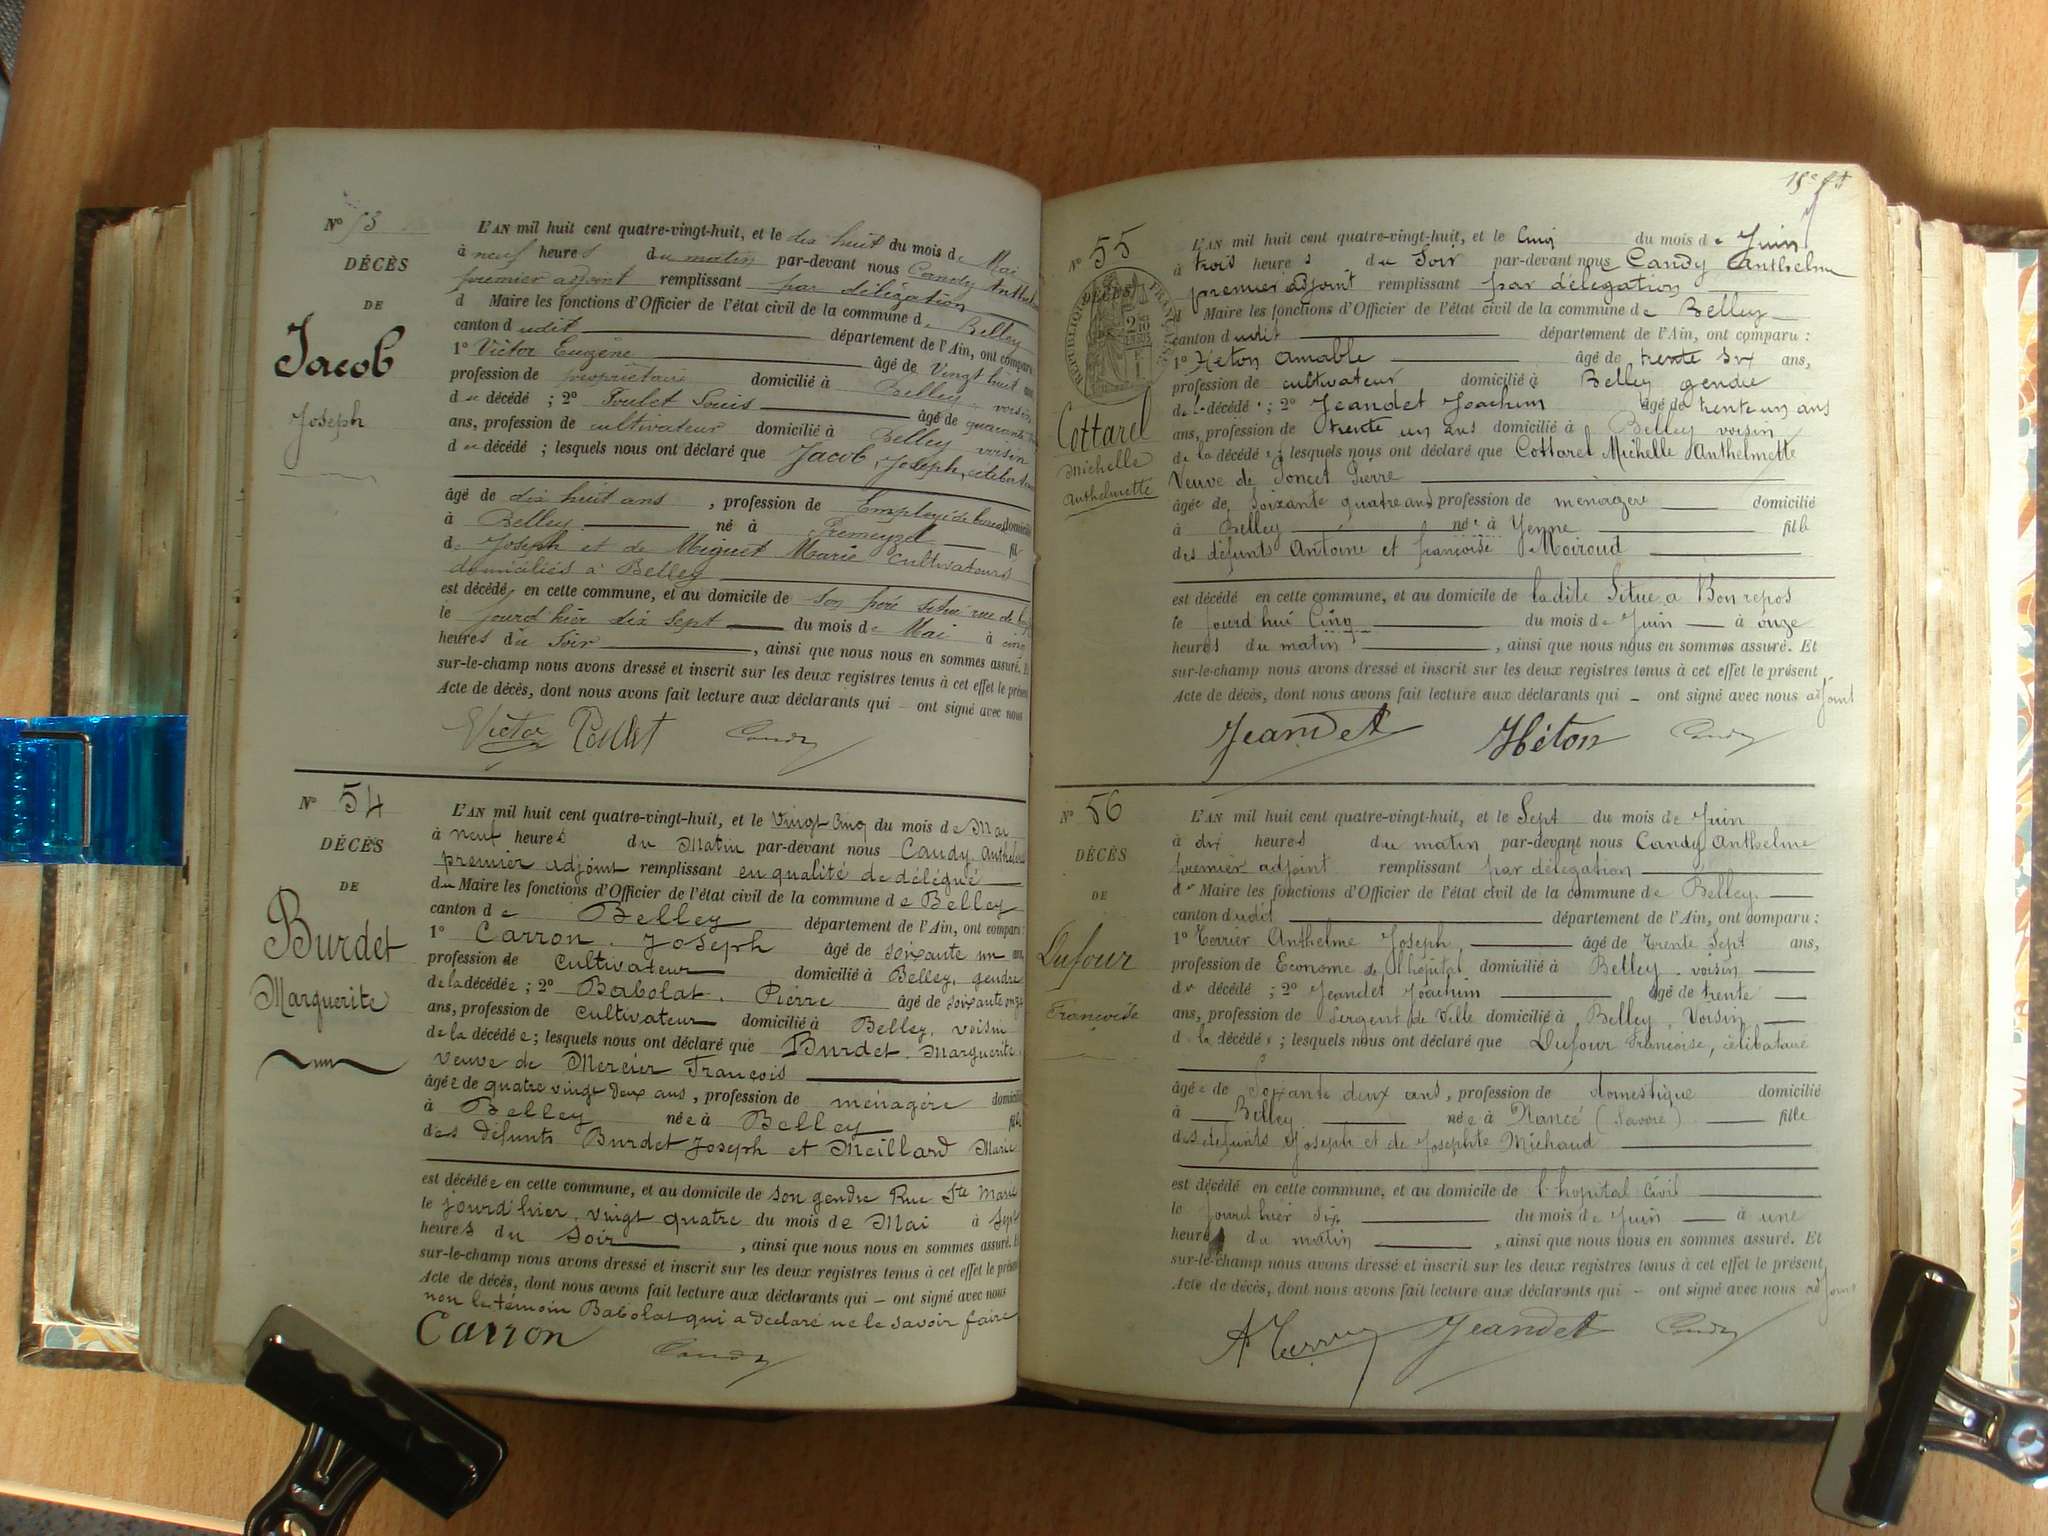 N° 53
DÉCÈS
DE
Jacob
Joseph
L'AN mil huit cent quatre-vingt-huit, et le dix huit du mois de Mai
à neuf heures du matin par-devant nous Candy Anthel
premier adjoint remplissant par délégation
d Maire les fonctions d'Officier de l'état civil de la commune de Belley
canton dudit département de l'Ain, ont comparu
1° Victor Eugène âgé de Vingt huit ans
profession de propriétaire domicilié à Belley voisin
du décédé ; 2° Poulet Louis âgé de quarante
ans, profession de cultivateur domicilié à Belley voisin
du décédé ; lesquels nous ont déclaré que Jacob, Joseph, célibataire
âgé de dix huit ans , profession de Employé de bureau domicilié
à Belley né à Premeyzel fil
de Joseph et de Miguet Marie Cultivateurs
domiciliés à Belley
est décédé en cette commune, et au domicile de son père situé rue de
le jourd'hier dix sept du mois de Mai à cinq
heures du Soir , ainsi que nous nous en sommes assuré. Et
sur-le-champ nous avons dressé et inscrit sur les deux registres tenus à cet effet le présent
Acte de décès, dont nous avons fait lecture aux déclarants qui – ont signé avec nous
Victor Poulet Candy
N° 54
DÉCÈS
DE
Burdet
Marguerite
L'AN mil huit cent quatre-vingt-huit, et le Vingt Cinq du mois de Mai
à neuf heures du Matin par-devant nous Candy Anthelme
premier adjoint remplissant en qualité de délégué
du Maire les fonctions d'Officier de l'état civil de la commune de Belley
canton de Belley département de l'Ain, ont comparu:
1° Carron. Joseph âgé de soixante un ans,
profession de Cultivateur domicilié à Belley, gendre
de la décédée ; 2° Babolat. Pierre âgé de soixante onze
ans, profession de cultivateur domicilié à Belley, voisin
de la décédée; lesquels nous ont déclaré que Burdet. Marguerite.
veuve de Mercier François
âgée de quatre vingt deux ans, profession de ménagère domicilié
à Belley née à Belley fille
des défunts Burdet Joseph et Meillard Marie
est décédée en cette commune, et au domicile de son gendre Rue Ste Marie
le jourd'hier, vingt quatre du mois de Mai à sept
heures du Soir , ainsi que nous nous en sommes assuré. Et
sur-le-champ nous avons dressé et inscrit sur les deux registres tenus à cet effet le présent
Acte de décès, dont nous avons fait lecture aux déclarants qui – ont signé avec nous
non le témoin Babolat qui a déclaré ne le savoir faire
Carron Candy
N° 55
DÉCÈS
RÉPUBLIQUE FRANÇAISE
Cottarel
Michelle
Anthelmette
L'AN mil huit cent quatre-vingt-huit, et le Cinq du mois de Juin
à trois heures du Soir par-devant nous Candy Anthelme
premier adjoint remplissant par délégation
d Maire les fonctions d'Officier de l'état civil de la commune de Belley
canton dudit département de l'Ain, ont comparu :
1° Héton Amable âgé de trente six ans,
profession de cultivateur domicilié à Belley gendre
de la décédé ; 2° Jeandet Joachim âgé de trente un ans
ans, profession de trente un ans domicilié à Belley voisin
de la décédée ; lesquels nous ont déclaré que Cottarel Michelle Anthelmette
Veuve de Poncet Pierre
âgée de Soixante quatre ans profession de ménagère domicilié
à Belley née à Yenne fille
des défunts Antoine et françoise Moiroud
est décédé en cette commune, et au domicile de ladite Situé a Bon repos
le jourd'hui Cinq du mois de Juin à onze
heures du matin , ainsi que nous nous en sommes assuré. Et
sur-le-champ nous avons dressé et inscrit sur les deux registres tenus à cet effet le présent
Acte de décès, dont nous avons fait lecture aux déclarants qui – ont signé avec nous adjoint
Jeandet Héton Candy
N° 56
DÉCÈS
DE
Dufour
Françoise
L'AN mil huit cent quatre-vingt-huit, et le Sept du mois de Juin
à dix heures du matin par-devant nous Candy Anthelme
premier adjoint remplissant par délégation
du Maire les fonctions d'Officier de l'état civil de la commune de Belley
canton dudit département de l'Ain, ont comparu :
1° Terrier Anthelme Joseph âgé de trente Sept ans,
profession de Econome de l'hôpital domicilié à Belley voisin
du décédé ; 2° Jeandet Joachim âgé de trente
ans, profession de Sergent de Ville domicilié à Belley, Voisin
de la décédé ; lesquels nous ont déclaré que Dufour Françoise, célibataire
âgée de Soixante deux ans , profession de domestique domicilié
à Belley née à Nancé (Savoie) fille
des défunts Joseph et de Josephte Michaud
est décédé en cette commune, et au domicile de l'hopital Civil
le jourd'hier six du mois de Juin à une
heures du matin , ainsi que nous nous en sommes assuré. Et
sur-le-champ nous avons dressé et inscrit sur les deux registres tenus à cet effet le présent
Acte de décès, dont nous avons fait lecture aux déclarants qui – ont signé avec nous adjoint
A Terrier Jeandet Candy